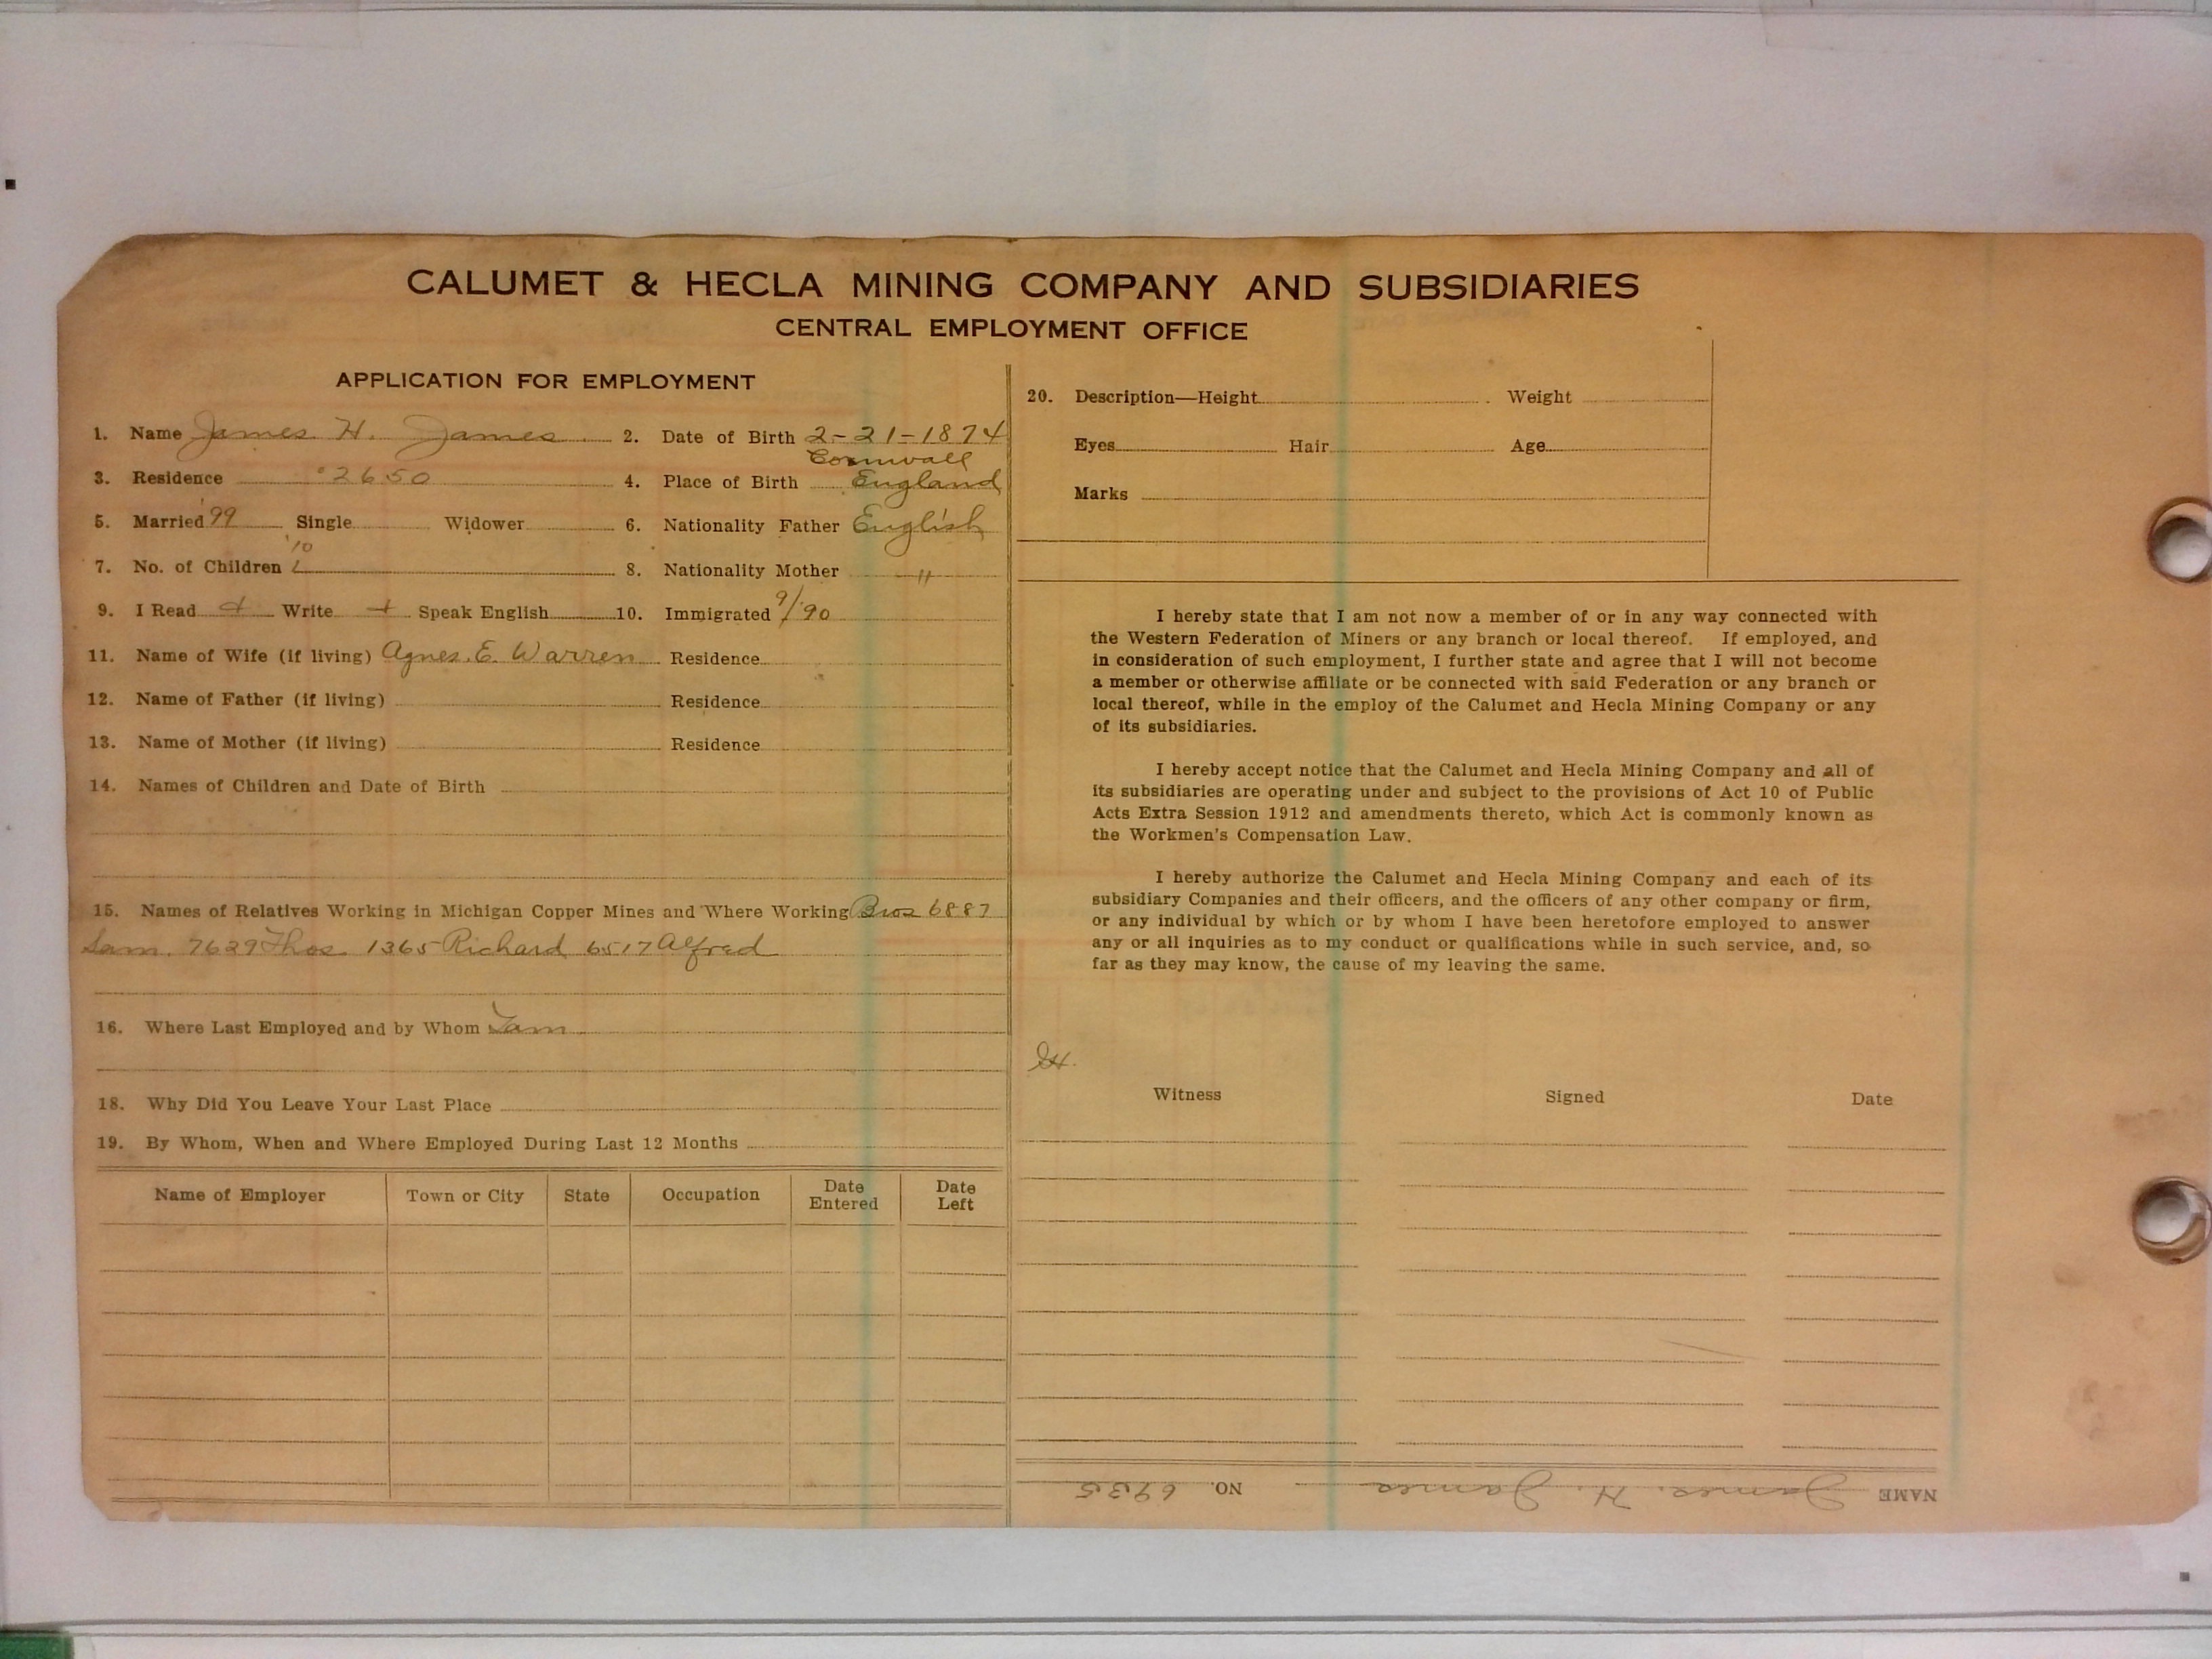 CALUMET & HECLA MINING COMPANY AND SUBSIDIARIES
CENTRAL EMPLOYMENT OFFICE
APPLICATION FOR EMPLOYMENT
1. Name James H. James 2. Date of Birth 2-21-1874
Cornwall
3. Residence 2650 4. Place of Birth England
5. Married 99 Single Widower 6. Nationality Father English
'10
7. No. of Children 8. Nationality Mother "
9. I Read + Write + Speak English 10. Immigrated 9/90
11. Name of Wife (if living) Agnes. E. Warren Residence
12. Name of Father (if living) Residence
13. Name of Mother (if living) Residence
14. Names of Children and Date of Birth
15. Names of Relatives Working in Michigan Copper Mines and Where Working Bros 6887
Sam. 7629 Thos 1365 Richard 6517 Alfred
16. Where Last Employed and by Whom Tam
18. Why Did You Leave Your Last Place
19. By Whom, When and Where Employed During Last 12 Months
Name of Employer Town or City State Occupation Date Entered Date Left
20. Description—Height Weight
Eyes Hair Age
Marks
I hereby state that I am not now a member of or in any way connected with
the Western Federation of Miners or any branch or local thereof. If employed, and
in consideration of such employment, I further state and agree that I will not become
a member or otherwise affiliate or be connected with said Federation or any branch or
local thereof, while in the employ of the Calumet and Hecla Mining Company or any
of its subsidiaries.
I hereby accept notice that the Calumet and Hecla Mining Company and all of
its subsidiaries are operating under and subject to the provisions of Act 10 of Public
Acts Extra Session 1912 and amendments thereto, which Act is commonly known as
the Workmen's Compensation Law.
I hereby authorize the Calumet and Hecla Mining Company and each of its
subsidiary Companies and their officers, and the officers of any other company or firm,
or any individual by which or by whom I have been heretofore employed to answer
any or all inquiries as to my conduct or qualifications while in such service, and, so
far as they may know, the cause of my leaving the same.
Witness Signed Date
NAME James. H. James NO. 6935